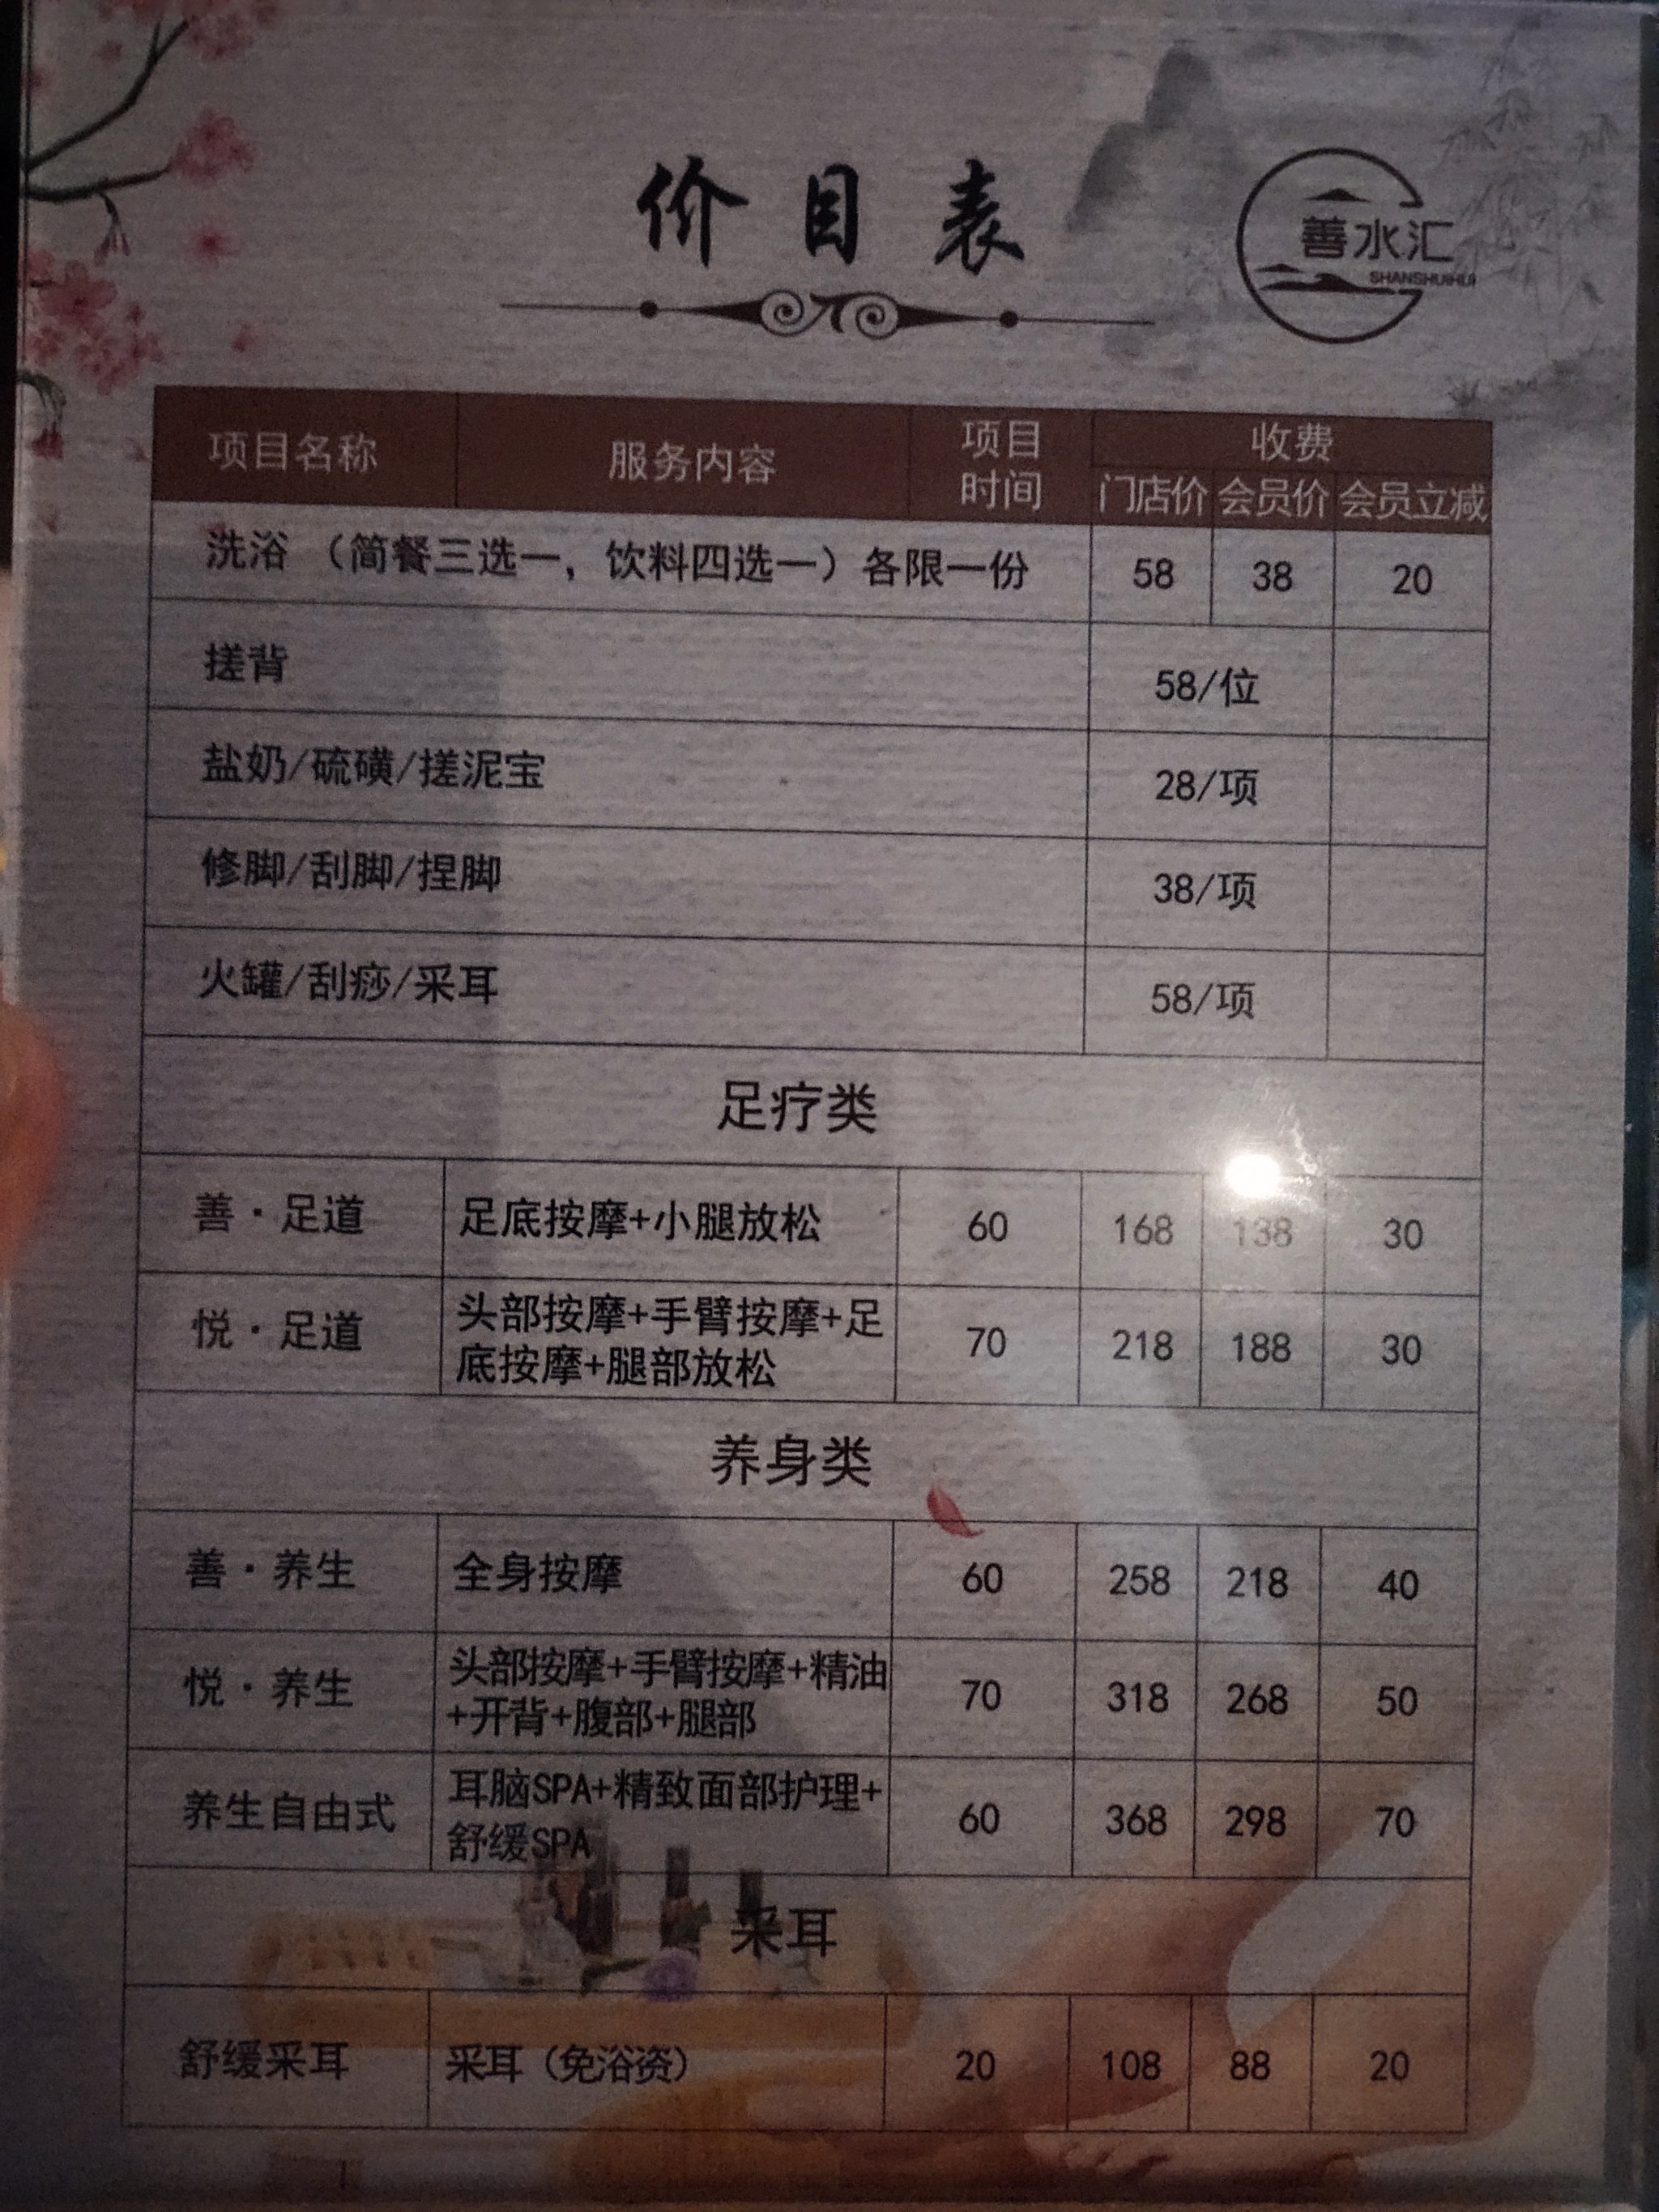 价目表
善水汇
SHANSHUIHUI
项目名称 服务内容 项目时间 收费
门店价 会员价 会员立减
洗浴 （简餐三选一，饮料四选一）各限一份 58 38 20
搓背 58/位
盐奶/硫磺/搓泥宝 28/项
修脚/刮脚/捏脚 38/项
火罐/刮痧/采耳 58/项
足疗类
善·足道 足底按摩+小腿放松 60 168 138 30
悦·足道 头部按摩+手臂按摩+足
底按摩+腿部放松 70 218 188 30
养身类
善·养生 全身按摩 60 258 218 40
悦·养生 头部按摩+手臂按摩+精油
+开背+腹部+腿部 70 318 268 50
养生自由式 耳脑SPA+精致面部护理+
舒缓SPA 60 368 298 70
采耳
舒缓采耳 采耳（免浴资） 20 108 88 20